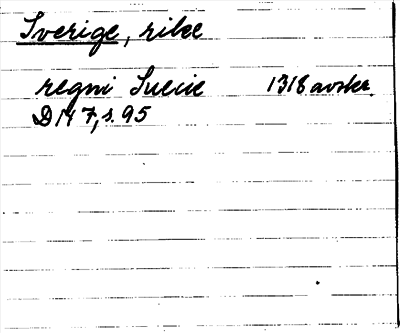 Sverige, rike
regni Suecie 1318 avskr.
DN 7, s. 95